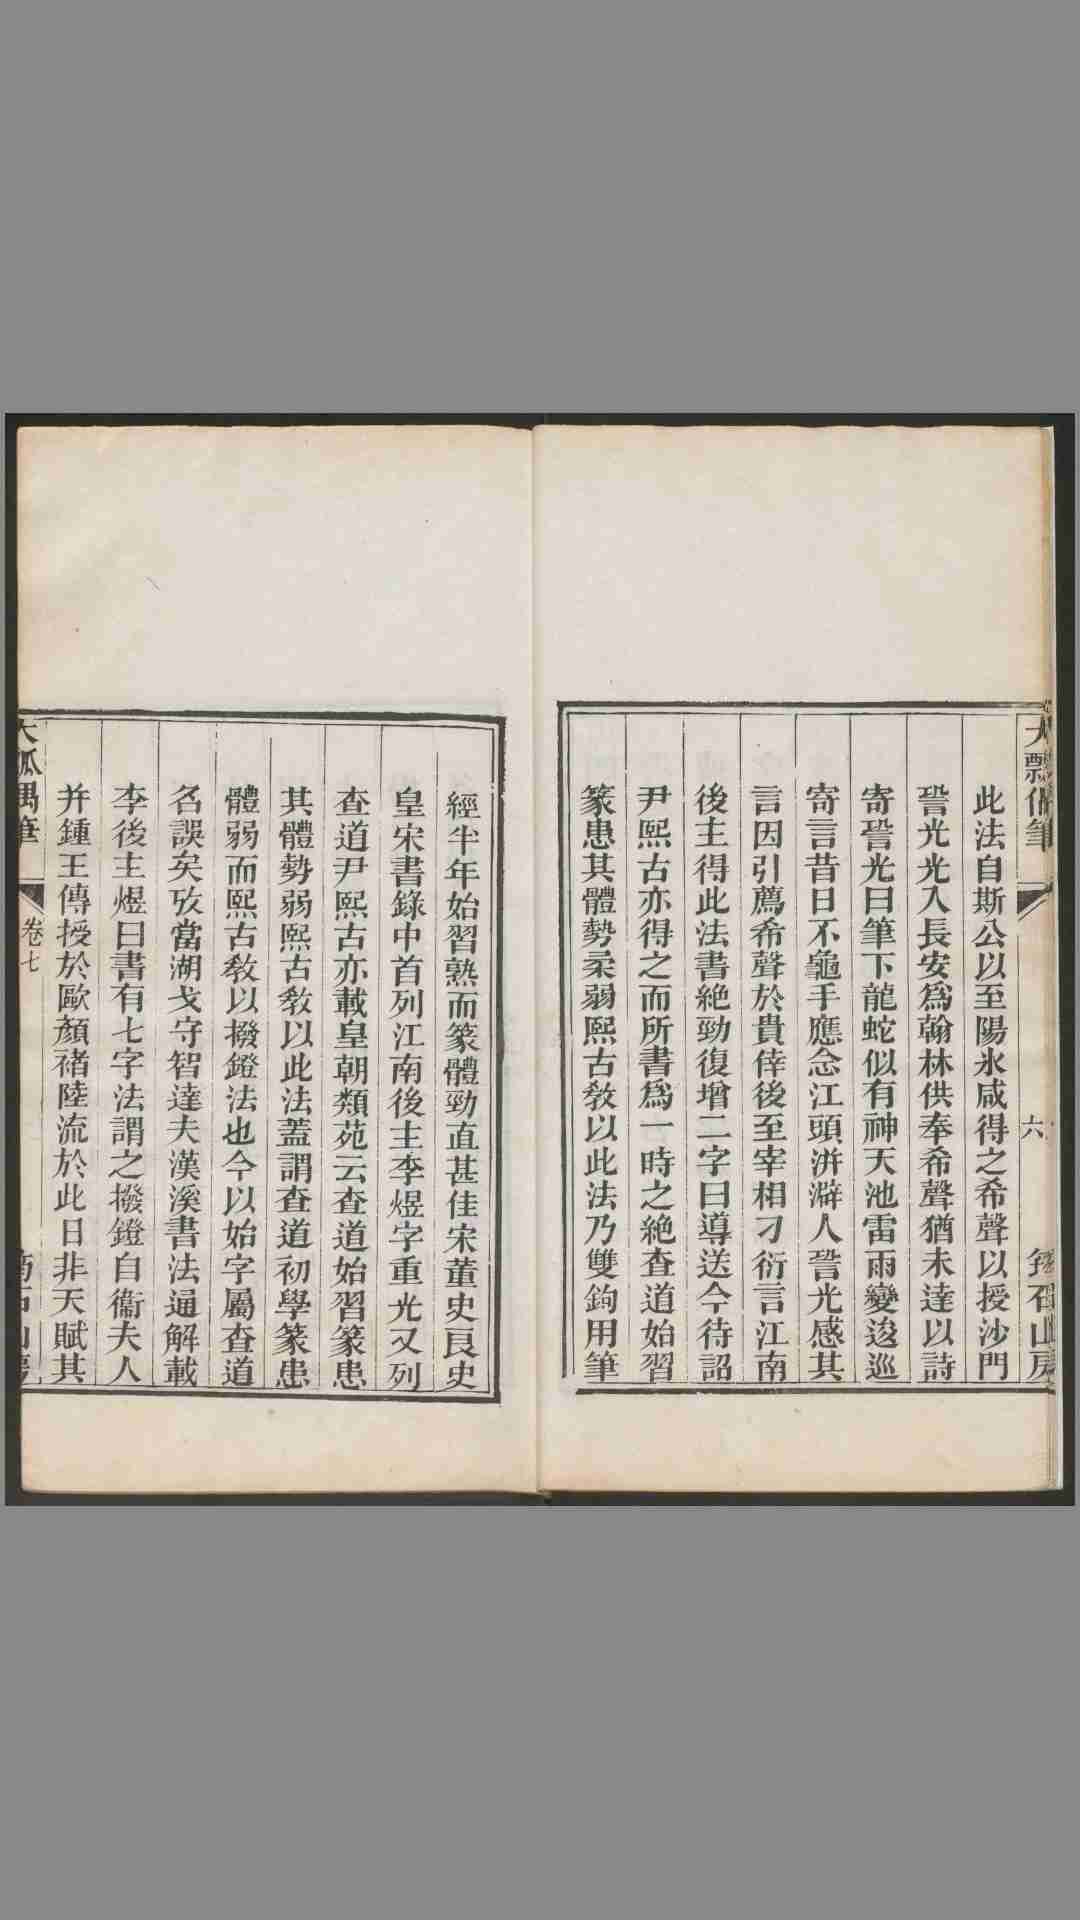 此法自斯公以至陽氷咸得之希聲以授沙門
䛒光光入長安爲翰林供奉希聲猶未達以詩
寄䛒光曰筆下龍蛇似有神天池雷雨變逡巡
寄言昔日不龜手應念江頭洴澼人䛒光感其
言因引薦希聲於貴倖後至宰相刁衍言江南
後主得此法書絶勁復增二字曰導送今待詔
尹熙古亦得之而所書爲一時之絶查道始習
篆患其體勢柔弱熙古敎以此法乃雙鉤用筆
經半年始習熟而篆體勁直甚佳宋董史良史
皇宋書錄中首列江南後主李煜字重光又列
查道尹熙古亦載皇朝類苑云查道始習篆患
其體勢弱熙古敎以此法蓋謂查道初學篆患
體弱而熙古敎以撥鐙法也今以始字屬查道
名誤矣攷當湖戈守智達夫漢溪書法通解載
李後主煜曰書有七字法謂之撥鐙自衞夫人
并鍾王傳授於歐顏褚陸流於此日非天賦其
大瓢偶筆
卷七